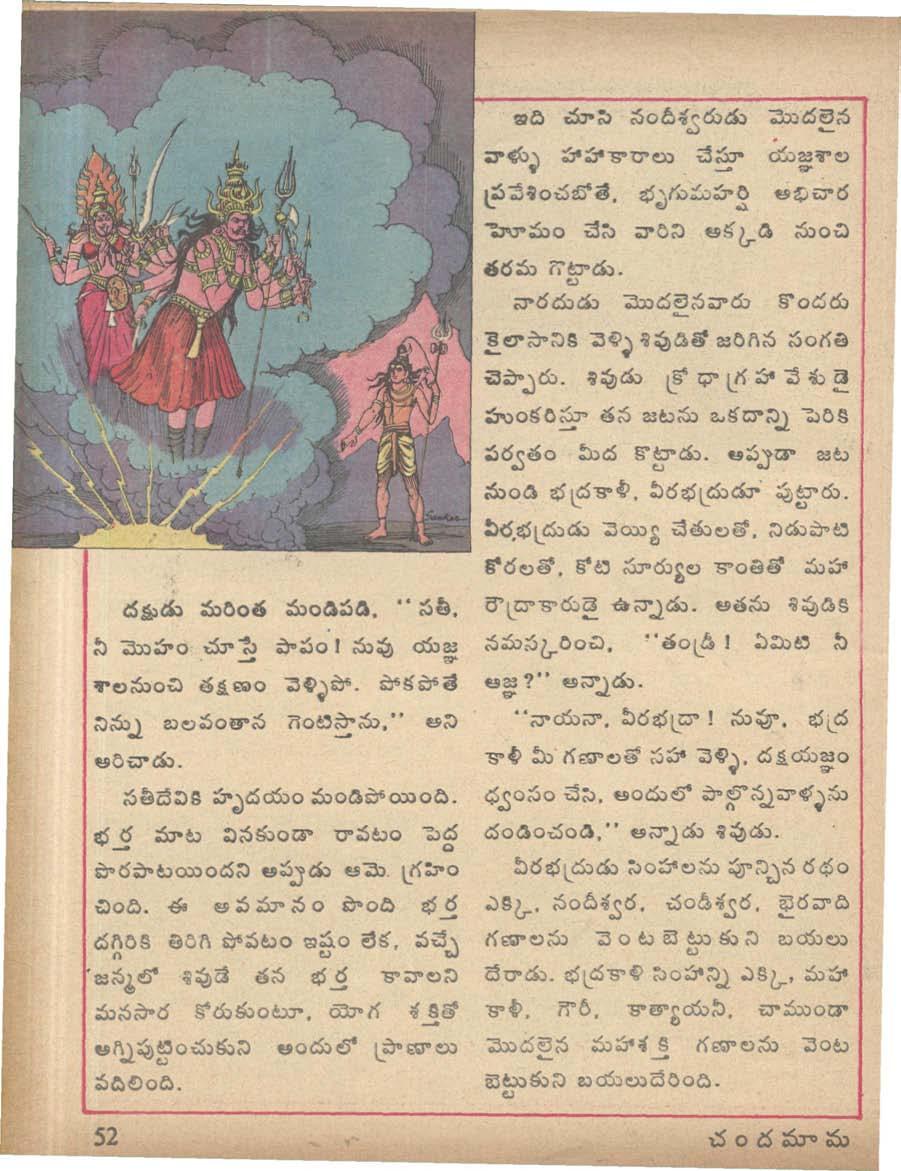 దక్షుడు మరింత మండిపడి, “సతీ,
నీ మొహం చూస్తే పాపం! నువు యజ్ఞ
శాలనుంచి తక్షణం వెళ్ళిపో. పోకపోతే
నిన్ను బలవంతాన గెంటిస్తాను,” అని
అరిచాడు.
సతీదేవికి హృదయం మండిపోయింది.
భర్త మాట వినకుండా రావటం పెద్ద
పొరపాటయిందని అప్పుడు ఆమె గ్రహిం
చింది. ఈ అవమానం పొంది భర్త
దగ్గిరికి తిరిగి పోవటం ఇష్టం లేక, వచ్చే
జన్మలో శివుడే తన భర్త కావాలని
మనసార కోరుకుంటూ, యోగ శక్తితో
అగ్నిపుట్టించుకుని అందులో ప్రాణాలు
వదిలింది.
ఇది చూసి నందీశ్వరుడు మొదలైన
వాళ్ళు హాహాకారాలు చేస్తూ యజ్ఞశాల
ప్రవేశించబోతే, భృగుమహర్షి అభిచార
హెూమం చేసి వారిని అక్కడి నుంచి
తరమ గొట్టాడు.
నారదుడు మొదలైనవారు కొందరు
కైలాసానికి వెళ్ళి శివుడితో జరిగిన సంగతి
చెప్పారు. శివుడు క్రోధాగ్రహావేశుడై
హుంకరిస్తూ తన జటను ఒకదాన్ని పెరికి
పర్వతం మీద కొట్టాడు. అప్పుడా జట
నుండి భద్రకాళీ, వీరభద్రుడూ పుట్టారు.
వీరభద్రుడు వెయ్యి చేతులతో, నిడుపాటి
కోరలతో, కోటి సూర్యుల కాంతితో మహా
రౌద్రాకారుడై ఉన్నాడు. అతను శివుడికి
నమస్కరించి, “తండ్రీ! ఏమిటి నీ
ఆజ్ఞ?” అన్నాడు.
“నాయనా, వీరభద్రా! నువూ, భద్ర
కాళీ మీ గణాలతో సహా వెళ్ళి, దక్షయజ్ఞం
ధ్వంసం చేసి, అందులో పాల్గొన్నవాళ్ళను
దండించండి,” అన్నాడు శివుడు.
వీరభద్రుడు సింహాలను పూన్చిన రథం
ఎక్కి, నందీశ్వర, చండీశ్వర, భైరవాది
గణాలను వెంటబెట్టుకుని బయలు
దేరాడు. భద్రకాళి సింహాన్ని ఎక్కి, మహా
కాళీ, గౌరీ, కాత్యాయనీ, చాముండా
మొదలైన మహాశక్తి గణాలను వెంట
బెట్టుకుని బయలుదేరింది.
52
చందమామ